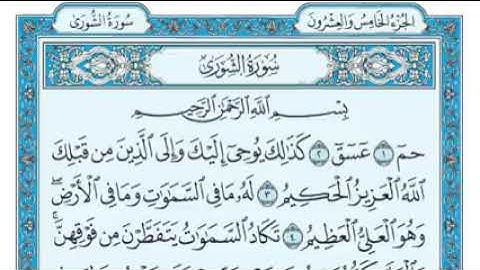 الجزء الخامس والعشرون
سورة الشورى
سُورَةُ الشُّورَى
بِسْمِ اللَّهِ الرَّحْمَٰنِ الرَّحِيمِ
حمٓ ١ عٓسٓقٓ ٢ كَذَٰلِكَ يُوحِىٓ إِلَيْكَ وَإِلَى ٱلَّذِينَ مِن قَبْلِكَ
ٱللَّهُ ٱلْعَزِيزُ ٱلْحَكِيمُ ٣ لَهُۥ مَا فِى ٱلسَّمَٰوَٰتِ وَمَا فِى ٱلْأَرْضِۖ
وَهُوَ ٱلْعَلِىُّ ٱلْعَظِيمُ ٤ تَكَادُ ٱلسَّمَٰوَٰتُ يَتَفَطَّرْنَ مِن فَوْقِهِنَّۚ